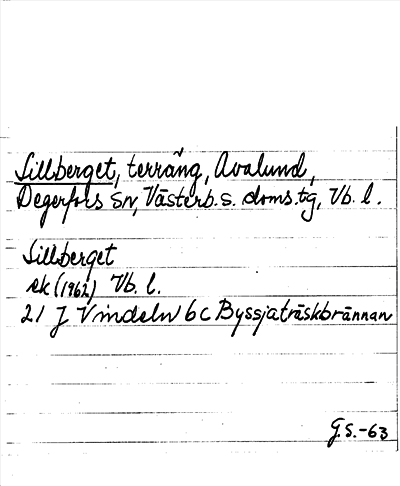 Sillberget, terräng, Avalund,
Degerfors sn, Västerb. s. doms. tg, Vb. l.
Sillberget
ek (1962) Vb. l.
21 J Vindeln 6c Byssjaträskbrännan
G.S.-63